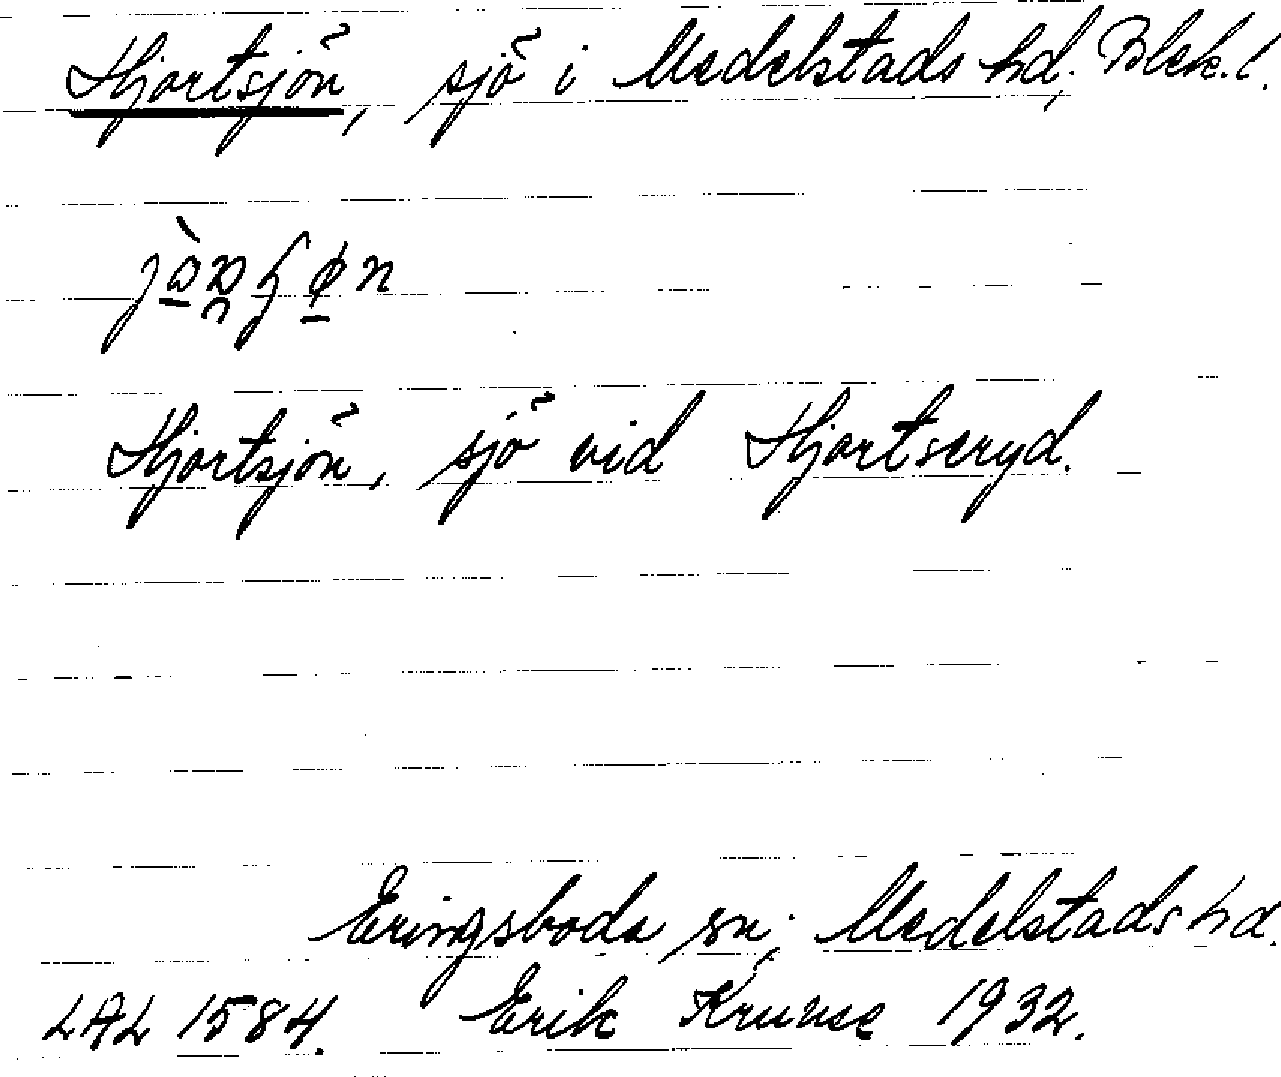 Hjortsjön, sjö i Medelstads hd, Blek. l.
Hjortsjön, sjö vid Hjortseryd.
Eringsboda sn, Medelstads hd.
LAL 1584. Erik Kruuse 1932.